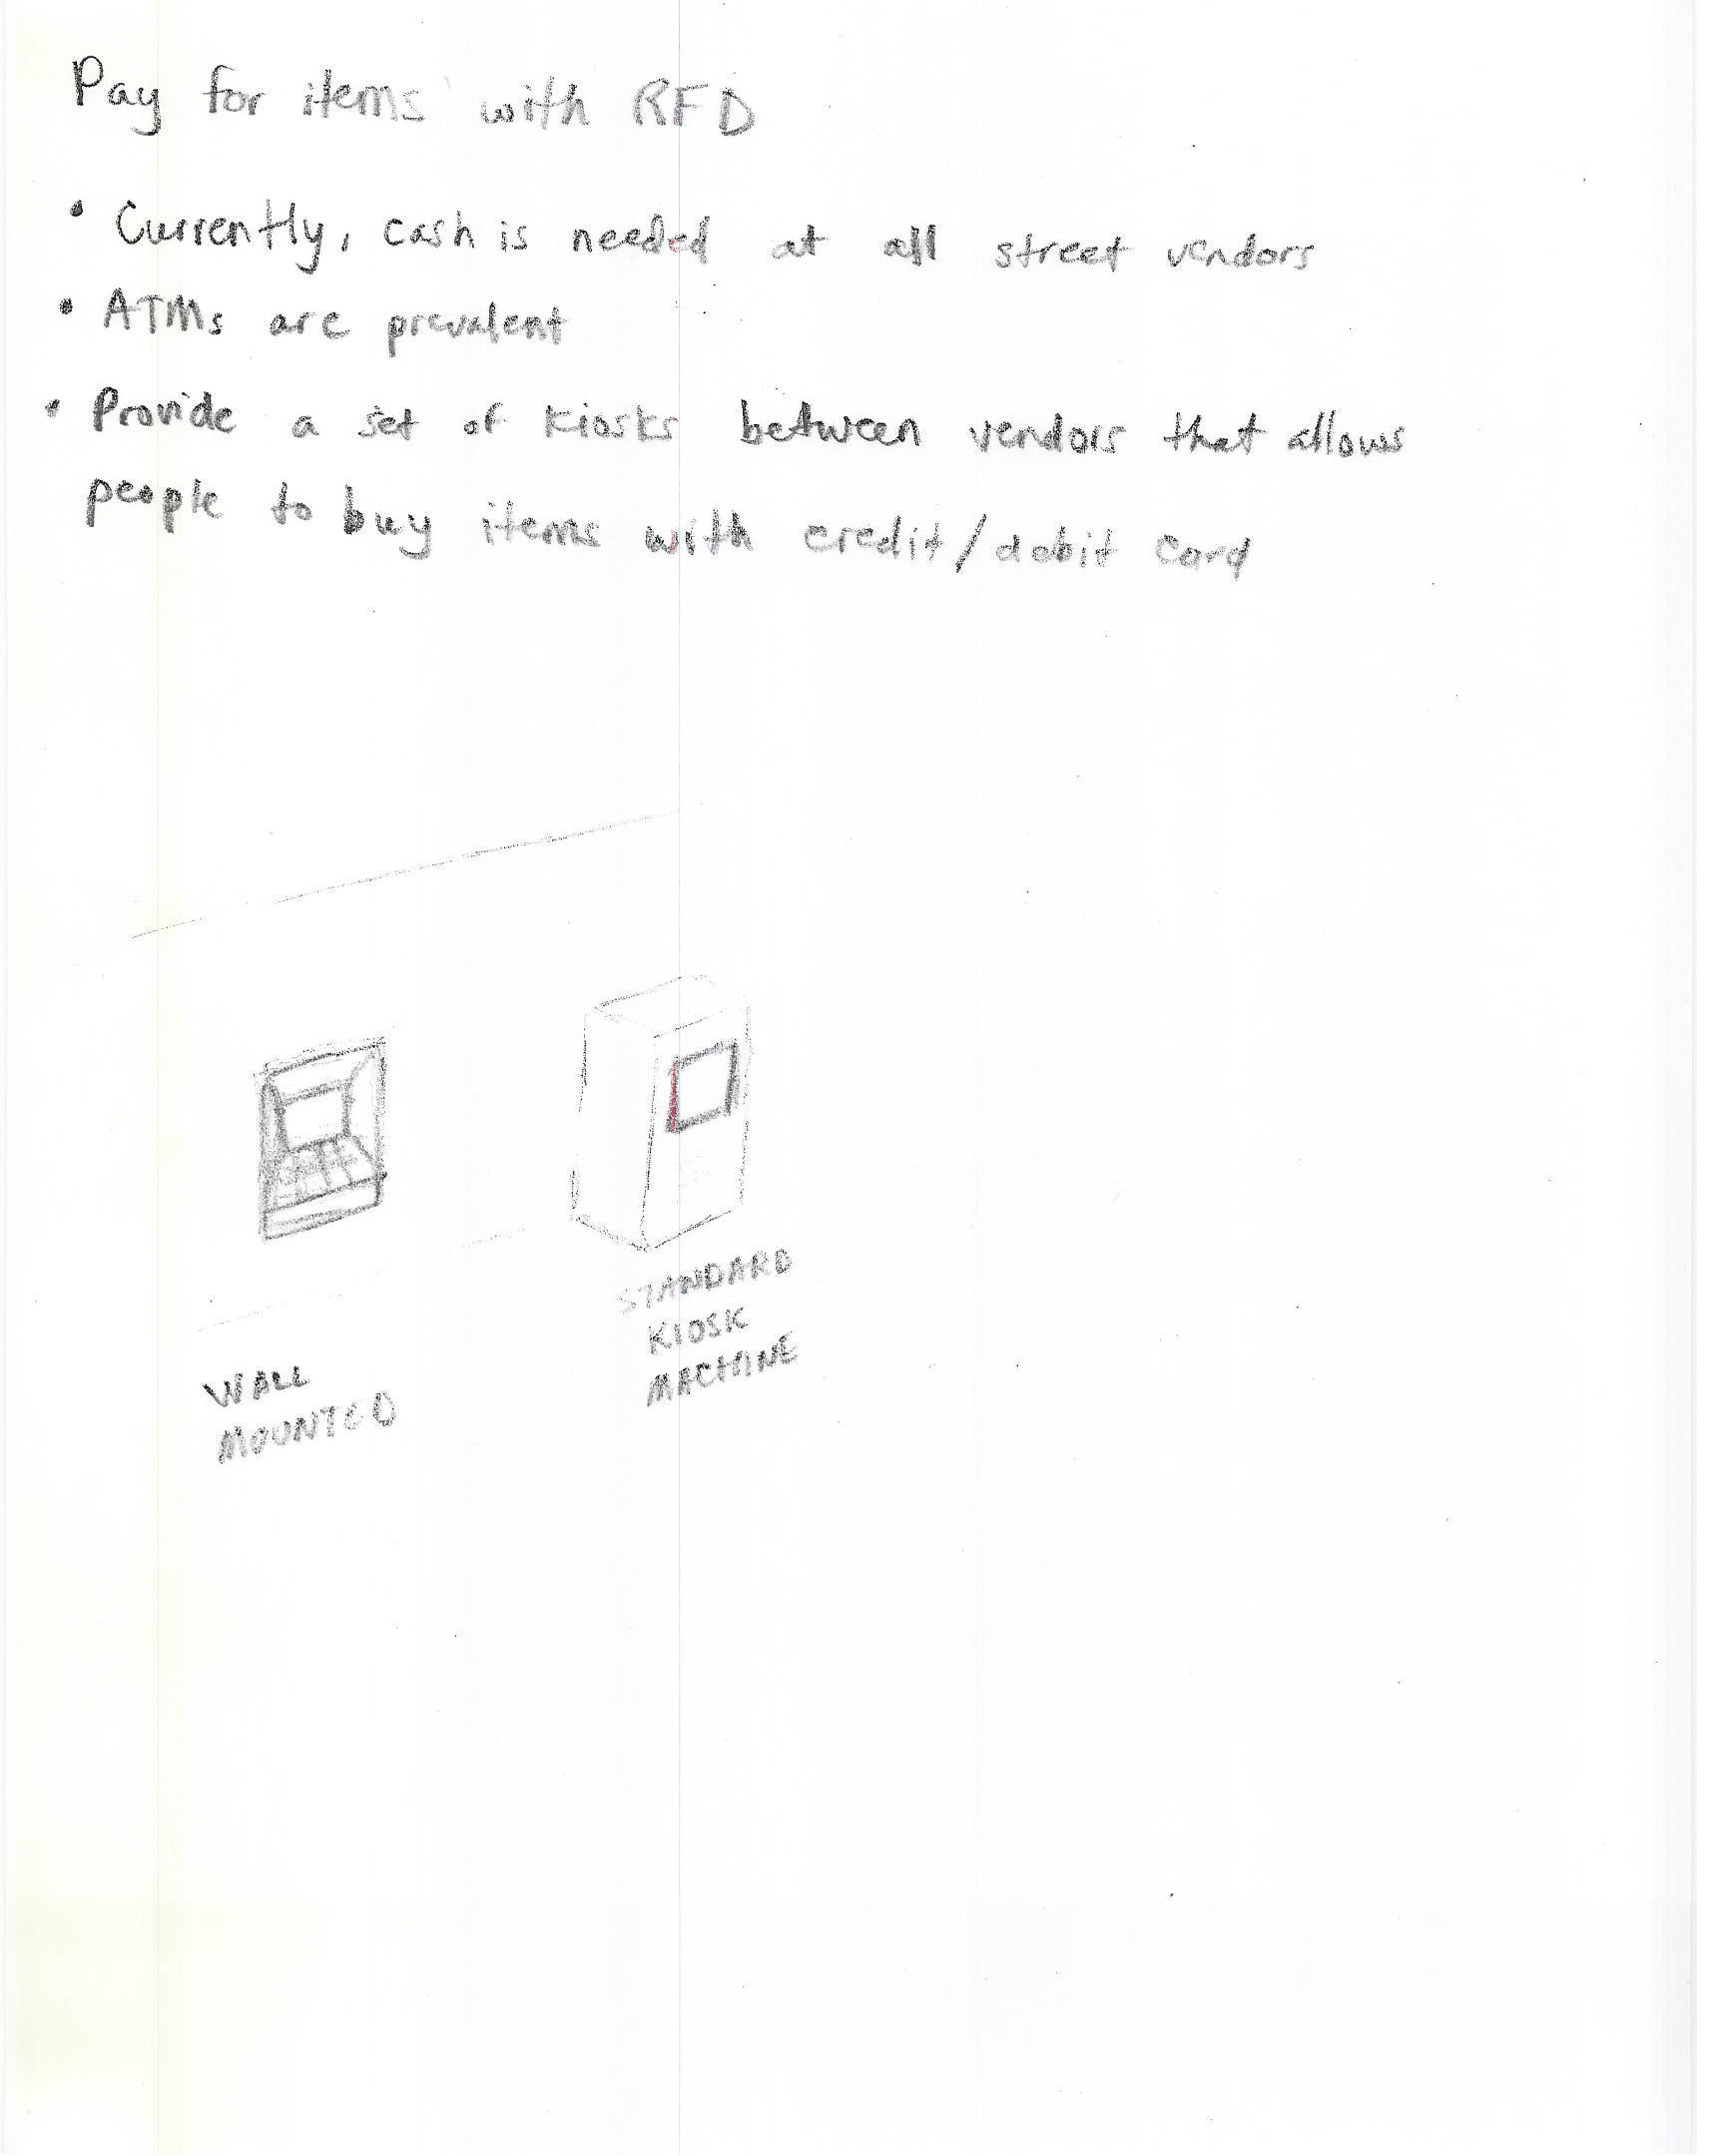 Pay for items with RFD
• Currently, cash is needed at all street vendors
• ATMs are prevalent
• Provide a set of kiosks between vendors that allows
people to buy items with credit/debit card
WALL
MOUNTED
STANDARD
KIOSK
MACHINE